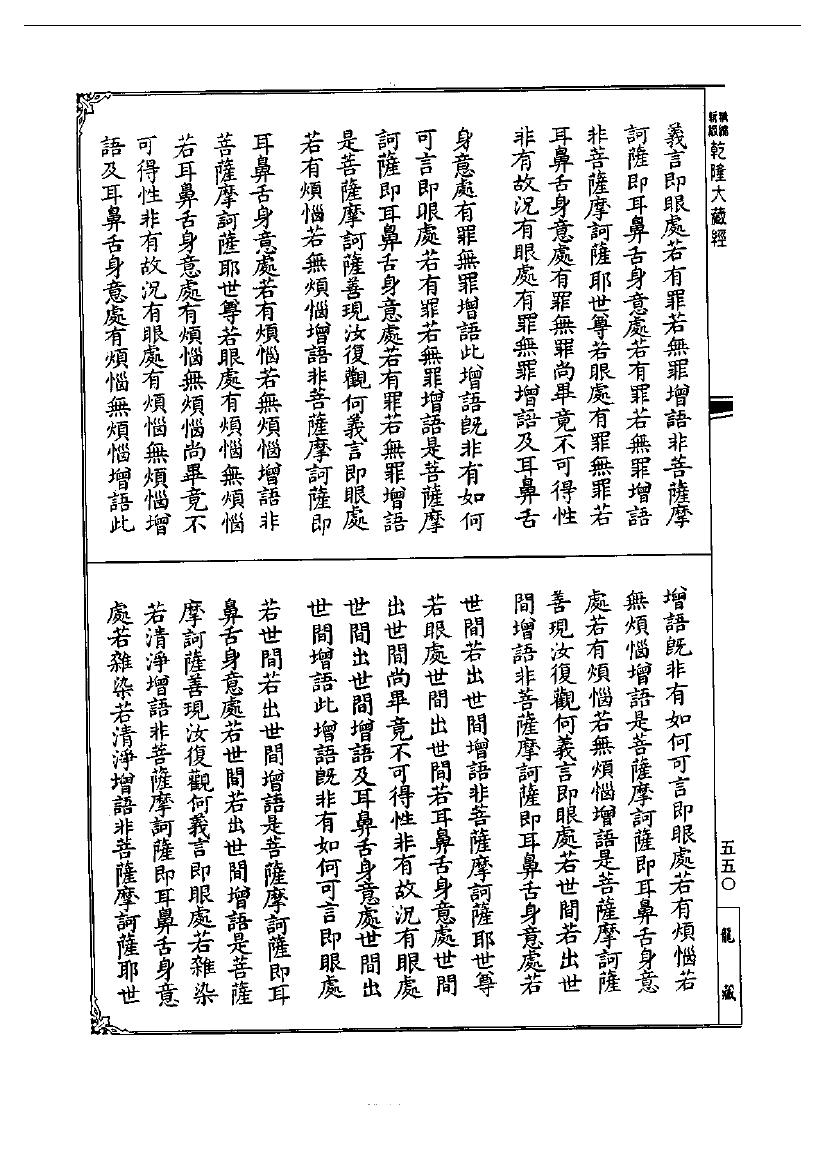 乾隆大藏經
義言即眼處若有罪若無罪增語非菩薩摩
訶薩即耳鼻舌身意處若有罪若無罪增語
非菩薩摩訶薩耶世尊若眼處有罪無罪若
耳鼻舌身意處有罪無罪尚畢竟不可得性
非有故況有眼處有罪無罪增語及耳鼻舌
身意處有罪無罪增語此增語旣非有如何
可言即眼處若有罪若無罪增語是菩薩摩
訶薩即耳鼻舌身意處若有罪若無罪增語
是菩薩摩訶薩善現汝復觀何義言即眼處
若有煩惱若無煩惱增語非菩薩摩訶薩即
耳鼻舌身意處若有煩惱若無煩惱增語非
菩薩摩訶薩耶世尊若眼處有煩惱無煩惱
若耳鼻舌身意處有煩惱無煩惱尚畢竟不
可得性非有故況有眼處有煩惱無煩惱增
語及耳鼻舌身意處有煩惱無煩惱增語此
增語旣非有如何可言即眼處若有煩惱若
無煩惱增語是菩薩摩訶薩即耳鼻舌身意
處若有煩惱若無煩惱增語是菩薩摩訶薩
善現汝復觀何義言即眼處若世間若出世
間增語非菩薩摩訶薩即耳鼻舌身意處若
世間若出世間增語非菩薩摩訶薩耶世尊
若眼處世間出世間若耳鼻舌身意處世間
出世間尚畢竟不可得性非有故況有眼處
世間出世間增語及耳鼻舌身意處世間出
世間增語此增語旣非有如何可言即眼處
若世間若出世間增語是菩薩摩訶薩即耳
鼻舌身意處若世間若出世間增語是菩薩
摩訶薩善現汝復觀何義言即眼處若雜染
若清淨增語非菩薩摩訶薩即耳鼻舌身意
處若雜染若清淨增語非菩薩摩訶薩耶世
五五〇
龍藏